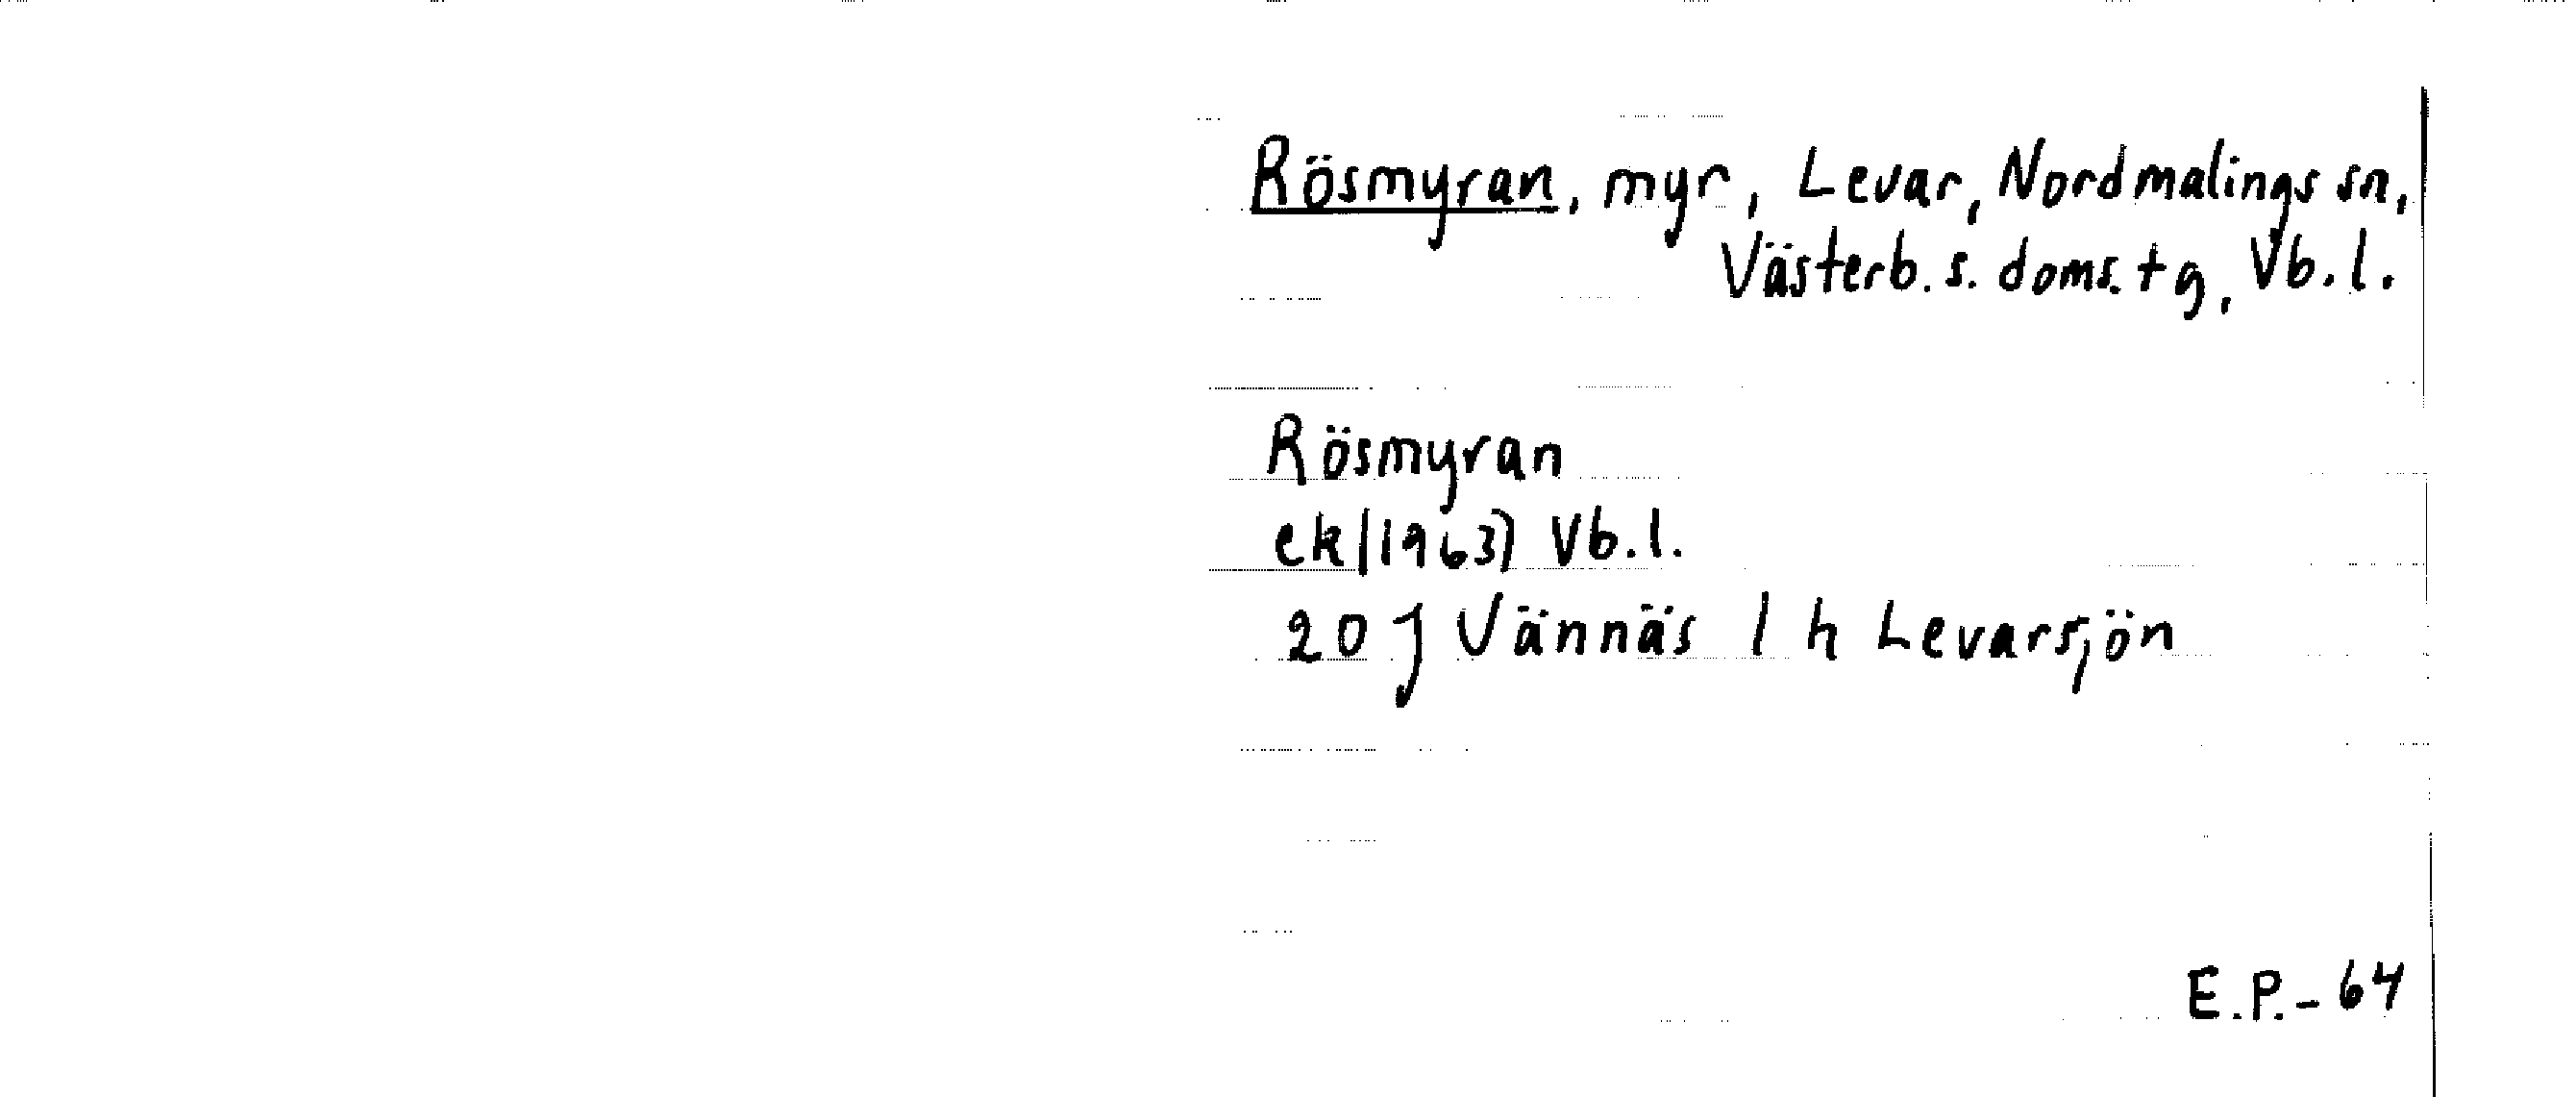 Rösmyran, myr, Levar, Nordmalings sn,
Västerb. s. doms. tg, Vb. l.
Rösmyran
ek (1963) Vb. l.
20 J Vännäs 1 h Levarsjön
E.P.-64